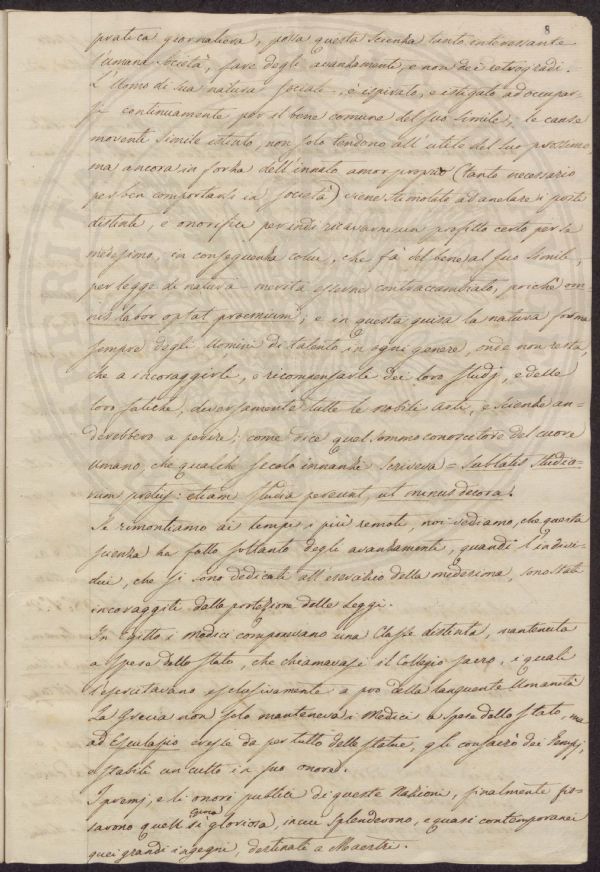 8
pratica giornaliera, possa questa Scienza tanto interessante
l'umana Società, fare degli avanzamenti, e non dei retrogradi.
L'Uomo di sua natura sociale, è ispirato, e istigato ad occupar-
si continuamente per il bene comune del suo simile; le cause
moventi simile istinto, non solo tendono all'utile del suo prossimo
ma ancora in forza dell'innato amor proprio (tanto necessario
per ben comportarsi in Società) viene stimolato ad anelare i posti
distinti, e onorifici per indi ricavarne un profitto certo per se
medesimo, in conseguenza colui, che fà del bene al suo simile,
per legge di natura merita esserne contraccambiato, poichè om-
nis labor optat proemium; e in questa guisa la natura forma
sempre degli Uomini di talento in ogni genere, onde non resta,
che a incoraggirli, e ricompensarli dei loro studj, e delle
loro fatiche, diversamente tutte le nobili arti, e Scienze an-
derebbero a perire; come dice quel sommo conoscitore del cuore
umano, che qualche secolo innanzi scriveva = Sublatis studio-
rum pretiis: etiam studia pereunt, ut minus decora!
Se rimontiamo ai tempi i più remoti, noi vediamo, che questa
scienza ha fatto soltanto degli avanzamenti, quando l'indivi-
dui, che si sono dedicati all'esercizio della medesima, sono stati
incoraggiti dalla protezione delle Leggi.
In Egitto i Medici componevano una Classe distinta, mantenuta
a spese dello Stato, che chiamavasi il Collegio Sacro, i quali
s'esercitavano esclusivamente a pro della languente Umanità
La Grecia non solo manteneva i Medici a spese dello Stato, ma
ad Esculapio eresse da per tutto delle statue, gli consacrò dei Tempj,
e stabilì un culto in suo onore.
I premj, e li onori publici di queste Nazioni, finalmente fis-
sarono quell' epoca sì gloriosa, in cui splenderono, e quasi contemporanei
quei grandi ingegni, destinati a Maestri.